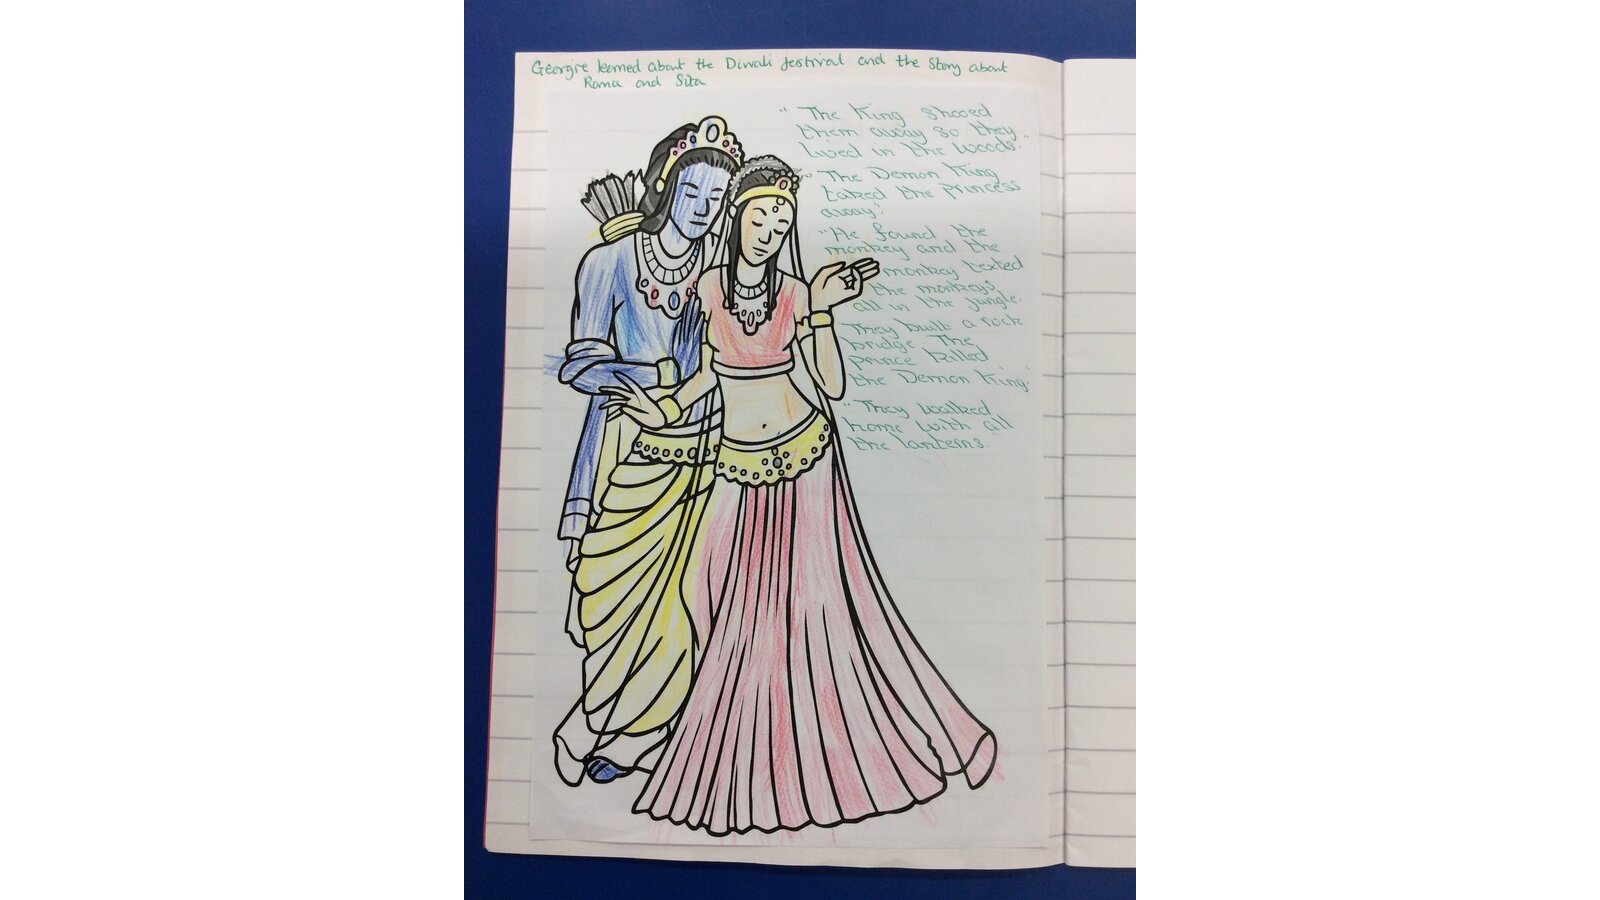 Georgie learned about the Diwali festival and the story about
Rama and Sita
"The King shooed
them away so they
lived in the woods."
"The Demon King
taked the princess
away".
"He found the
monkey and the
monkey texted
the monkeys
all in the jungle.
They built a rock
bridge The
prince killed
the Demon King."
"They walked
home with all
the lanterns."